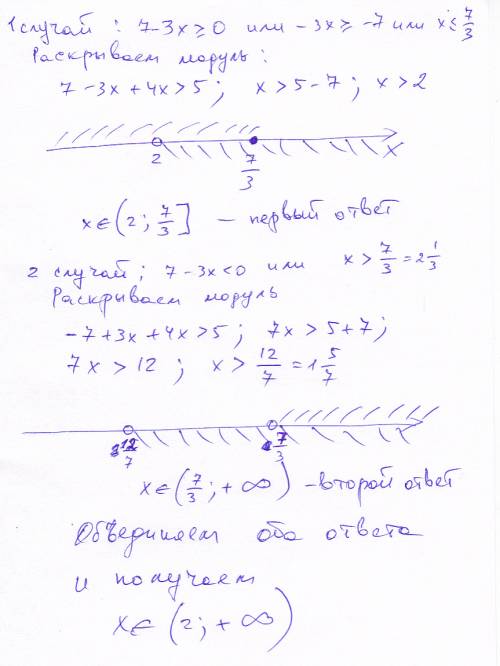 1 случай: 7-3x≥0 или -3x≥-7 или x≤7/3
Раскрываем модуль:
7-3x+4x>5; x>5-7; x>2
2 7/3 x
x∈(2; 7/3] – первый ответ
2 случай; 7-3x<0 или x>7/3=2 1/3
Раскрываем модуль
-7+3x+4x>5; 7x>5+7;
7x>12; x>12/7=1 5/7
12/7 7/3
x∈(7/3; +∞) – второй ответ
Объединяем оба ответа
и получаем
x∈(2; +∞)